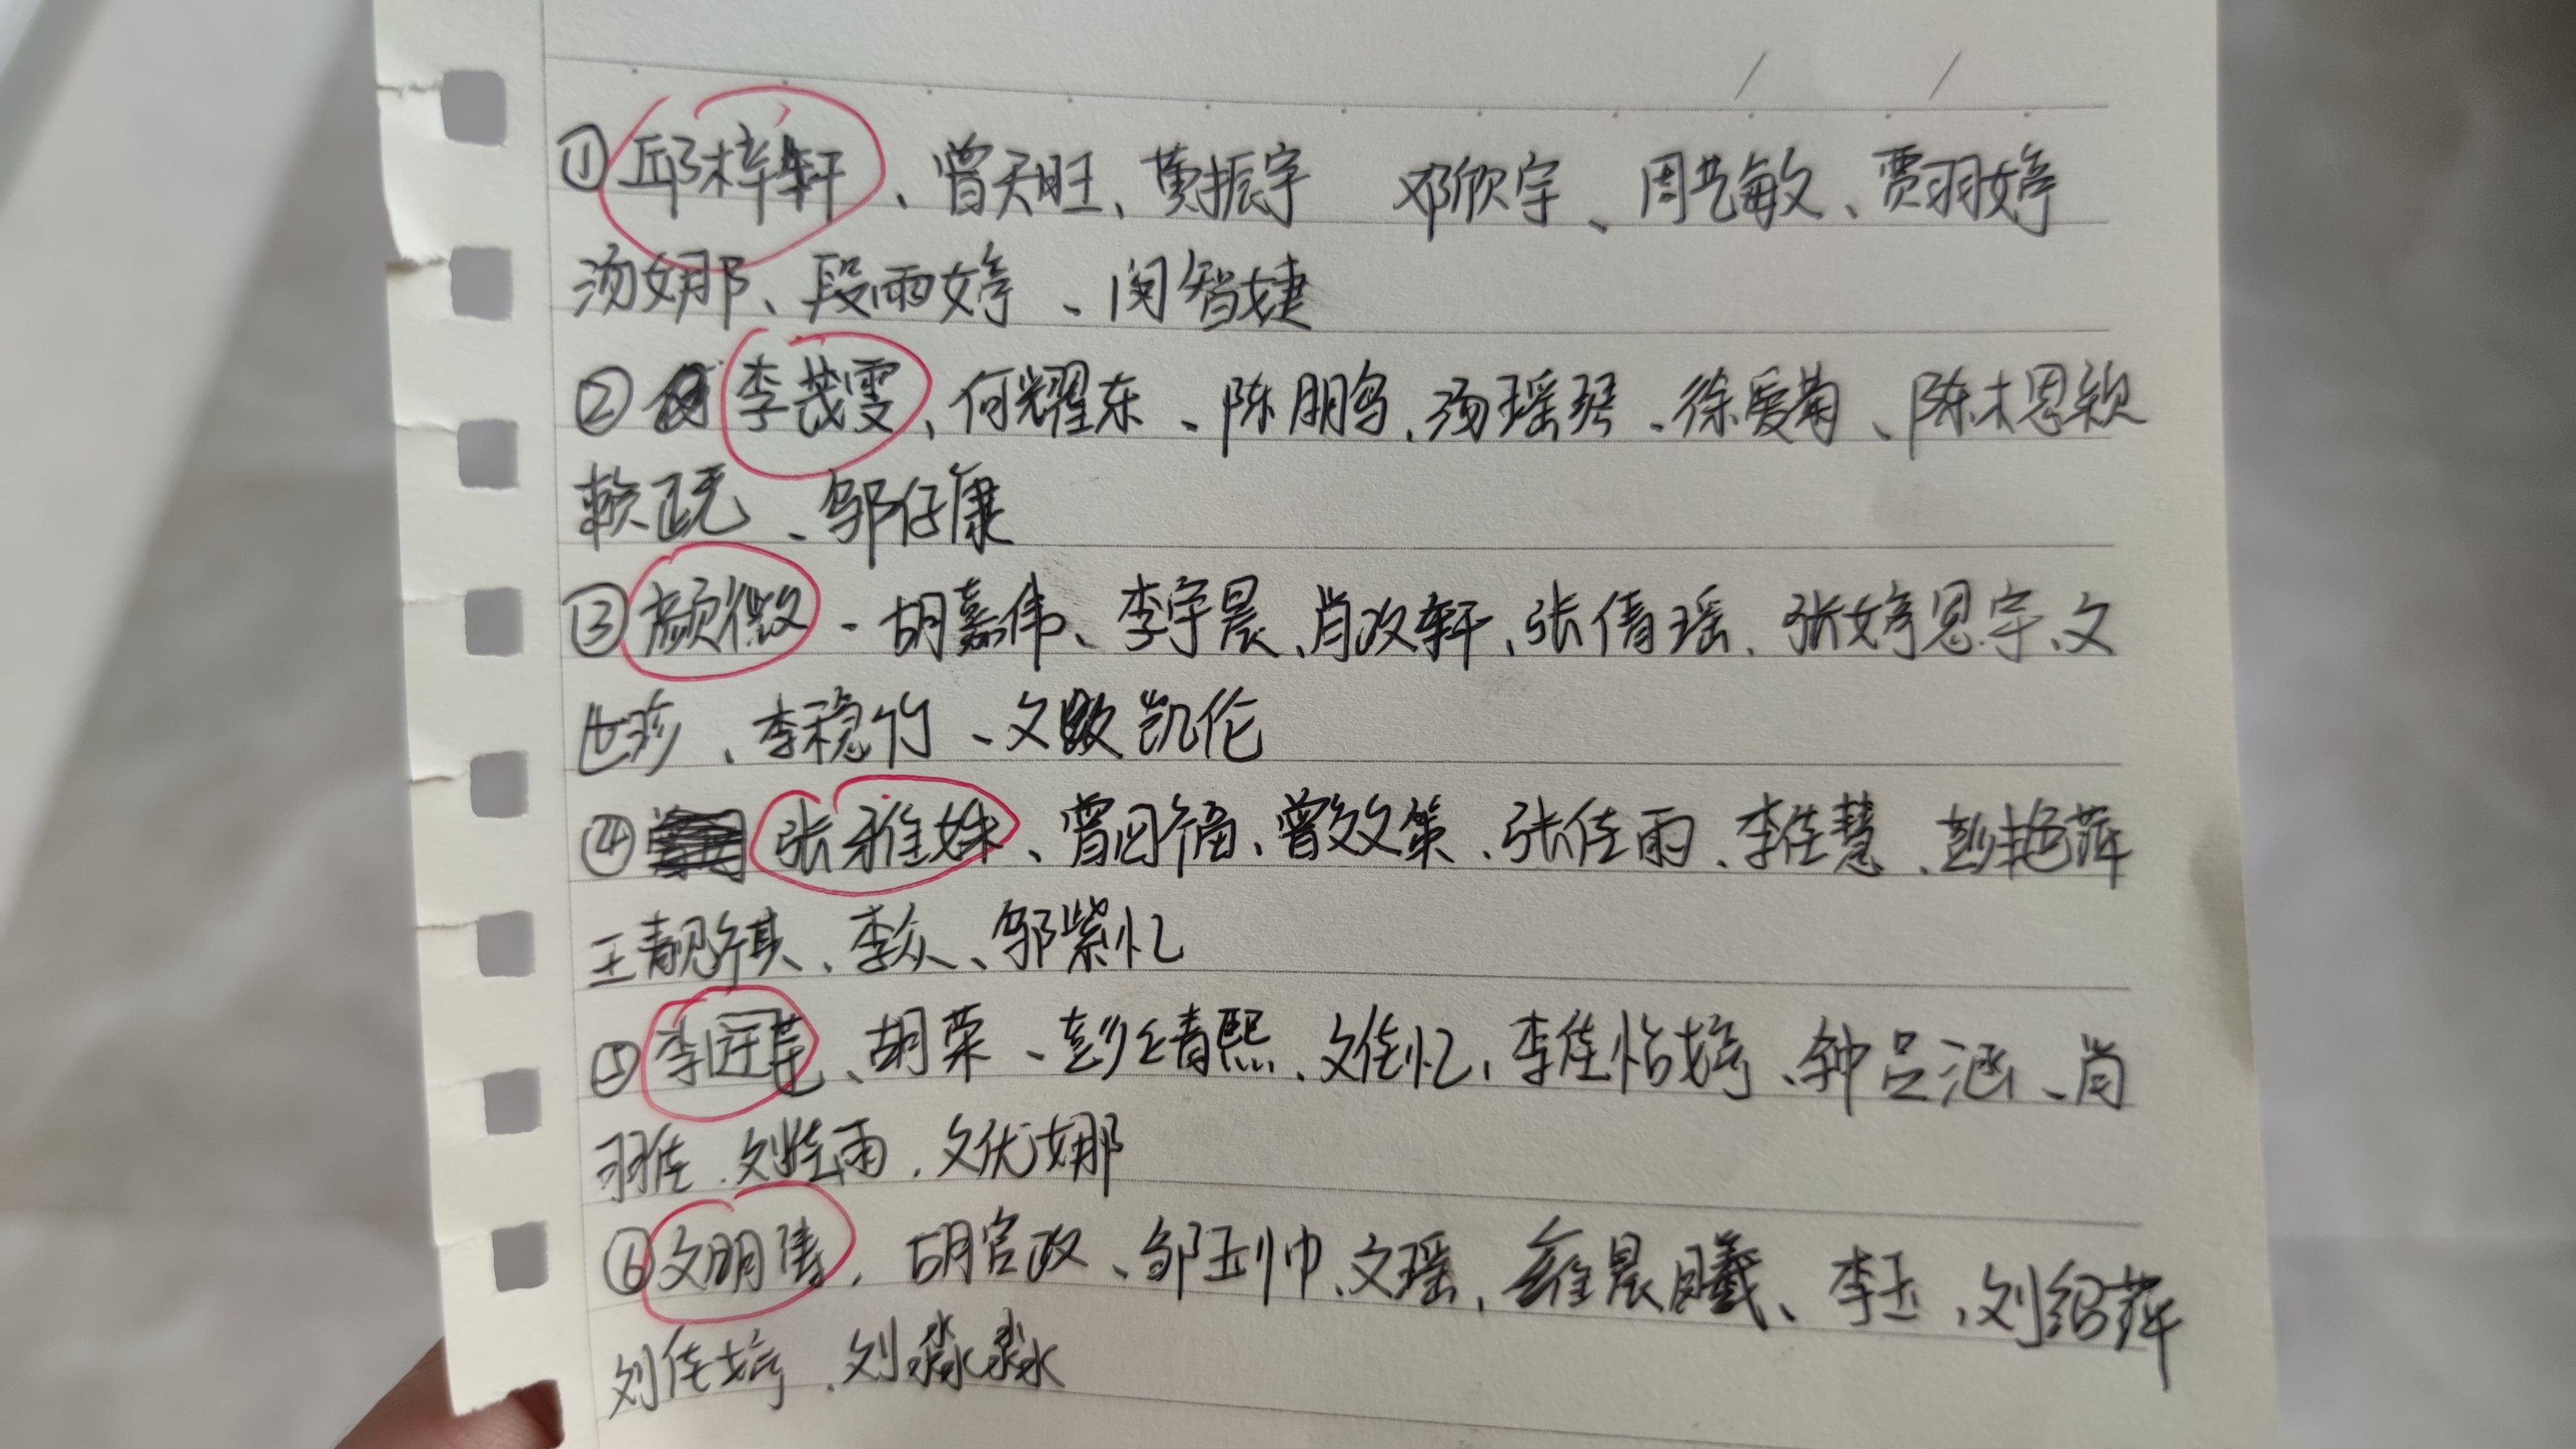 ①邱梓轩、曾天旺、黄振宇 邓欣宇、周艺敏、贾羽婷
汤娜、段雨婷、闵智婕
②李茂雯、何耀东、陈朋鸟、汤瑶琴、徐爱菊、陈木思颖
赖正无、邹仔康
③颜微、胡嘉伟、李宇晨、肖政轩、张倩瑶、张婷思宇、文
世珍、李稳竹、文凯伦
④张雅姝、曾国福、曾效策、张佳雨、李佳慧、彭艳萍
王靓祺、李众、邹紫忆
⑤李、胡荣、彭靖熙、文佳忆、李佳怡婷、钟吕涵、肖
羽佳、刘佳雨、文优娜
⑥文明倩、胡官政、邹玉帅、文瑶、晨曦、李玉、刘绍萍
刘佳婷、刘淼淼